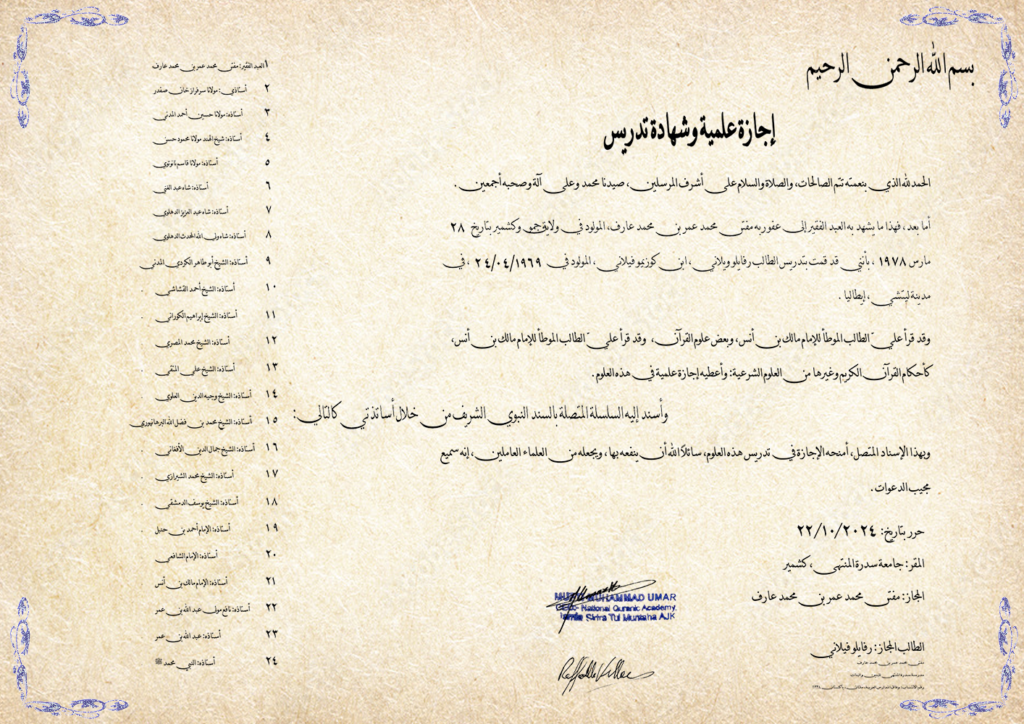 بسم الله الرحمن الرحيم
إجازة علمية وشهادة تدريس
الحمد لله الذي بنعمته تتم الصالحات، والصلاة والسلام على أشرف المرسلين، صيدنا محمد وعلى آلة وصحبه أجمعين.
أما بعد، فهذا ما يشهد به العبد الفقير إلى عفو ربه مفتي محمد عمر بن محمد عارف، المولود في ولاية جمو وكشمير بتاريخ ٢٨
مارس ١٩٧٨، بأنني قد قمت بتدريس الطالب رفايلو ويلاني، ابن كوزيمو فيلاني، المولود في ٢٤/٠٤/١٩٦٩، في
مدينة ليتشي، إيطاليا.
وقد قرأ علي الطالب الموطأ للإمام مالك بن أنس، وبعض علوم القرآن، وقد قرأ علي الطالب الموطأ للإمام مالك بن أنس،
كأحكام القرآن الكريم وغيرها من العلوم الشرعية: وأعطيه إجازة علمية في هذه العلوم.
وأسند إليه السلسلة المتصلة بالسند النبوي الشريف من خلال أساتذتي كالتالي:
وبهذا الإسناد المتصل، أمنحه الإجازة في تدريس هذه العلوم، سائلاً الله أن ينفعه بها، ويجعله من العلماء العاملين، إنه سميع
مجيب الدعوات.
حرر بتاريخ: ٢٢/١٠/٢٠٢٤
المقر: جامعة سدرة المنتهى، كشمير
المجاز: مفتي محمد عمر بن محمد عارف
الطالب المجاز: رفايلو فيلاني
مفتي محمد عمر بن محمد عارف
MUHAMMAD UMAR
National Quranic Academy,
Tul Muntaha AJK
١ العبد الفقير: مفتي محمد عمر بن محمد عارف
٢ أستاذي: مولانا سرفراز خان صفدر
٣ أستاذه: مولانا حسين أحمد المدني
٤ أستاذه: شيخ الهند مولانا محمود حسن
٥ أستاذه: مولانا قاسم نانوتوي
٦ أستاذه: شاه عبد الغني
٧ أستاذه: شاه عبد العزيز الدهلوي
٨ أستاذه: شاه ولي الله المحدث الدهلوي
٩ أستاذه: الشيخ أبو طاهر الكردي المدني
١٠ أستاذه: الشيخ أحمد القشاشي .
١١ أستاذه: الشيخ إبراهيم الكوراني .
١٢ أستاذه: الشيخ محمد المصري .
١٣ أستاذه: الشيخ علي المتقي .
١٤ أستاذه: الشيخ وجيه الدين العلوي .
١٥ أستاذه: الشيخ محمد بن فضل الله البرهانبوري .
١٦ أستاذه: الشيخ جمال الدين الأفغاني .
١٧ أستاذه: الشيخ محمد الشيرازي .
١٨ أستاذه: الشيخ يوسف الدمشقي .
١٩ أستاذه: الإمام أحمد بن حنبل .
٢٠ أستاذه: الإمام الشافعي .
٢١ أستاذه: الإمام مالك بن أنس
٢٢ أستاذه: نافع مولى عبد الله بن عمر
٢٣ أستاذه: عبد الله بن عمر
٢٤ أستاذه: النبي محمد ﷺ